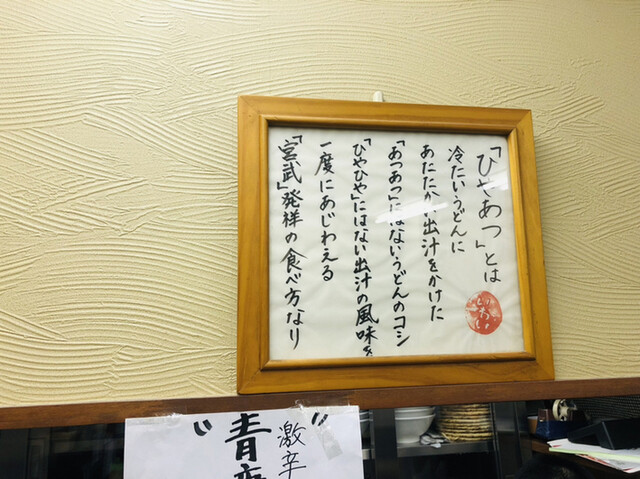 「ひやあつ」とは
冷たいうどんに
あたたかい出汁をかけた
「あつあつ」にはないうどんのコシ
「ひやひや」にはない出汁の風味を
一度にあじわえる
「宮武」発祥の食べ方なり
激辛
"青